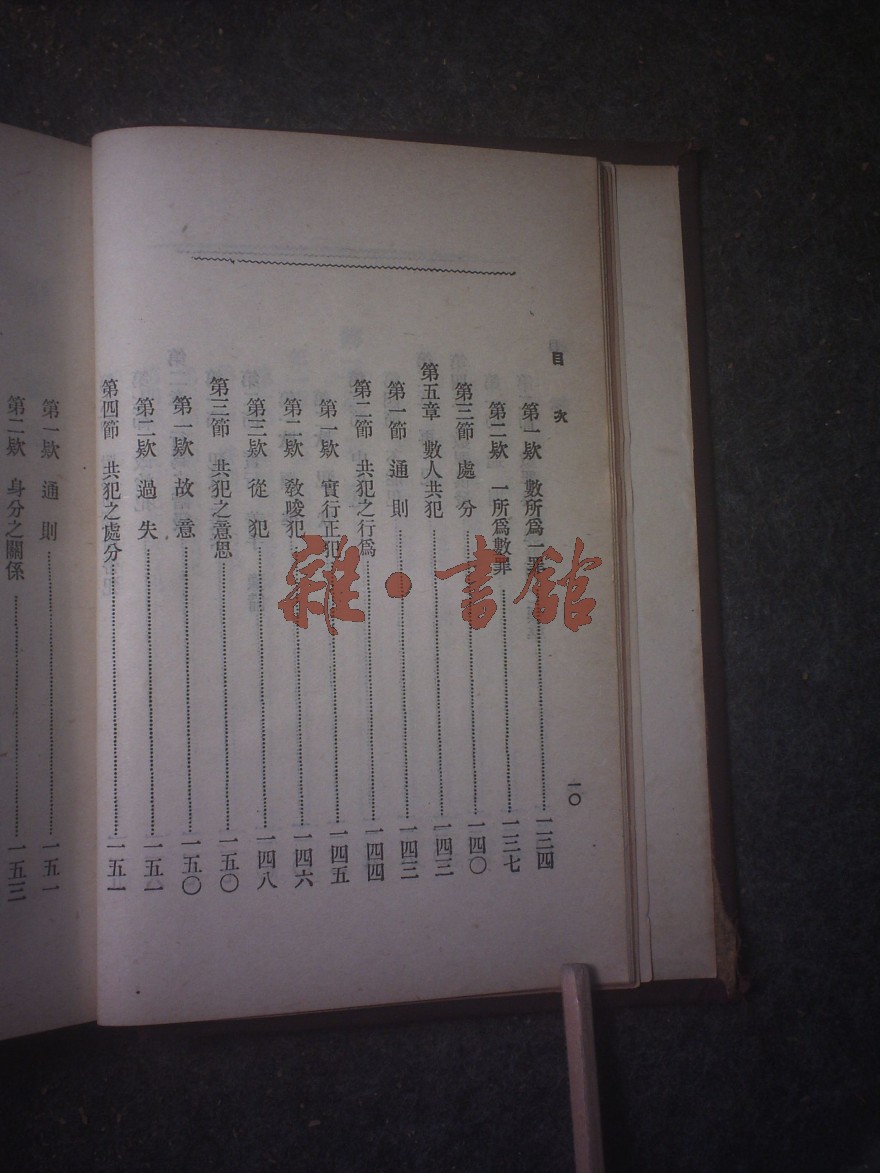 目次
一〇
第一欵 數所爲一罪 一三四
第二欵 一所爲數罪 一三七
第三節 處分 一四〇
第五章 數人共犯 一四三
第一節 通則 一四三
第二節 共犯之行爲 一四四
第一欵 實行正犯 一四五
第二欵 敎唆犯 一四六
第三欵 從犯 一四八
第三節 共犯之意思 一五〇
第一欵 故意 一五〇
第二欵 過失 一五一
第四節 共犯之處分 一五一
第一欵 通則 一五一
第二欵 身分之關係 一五三
雜·書館